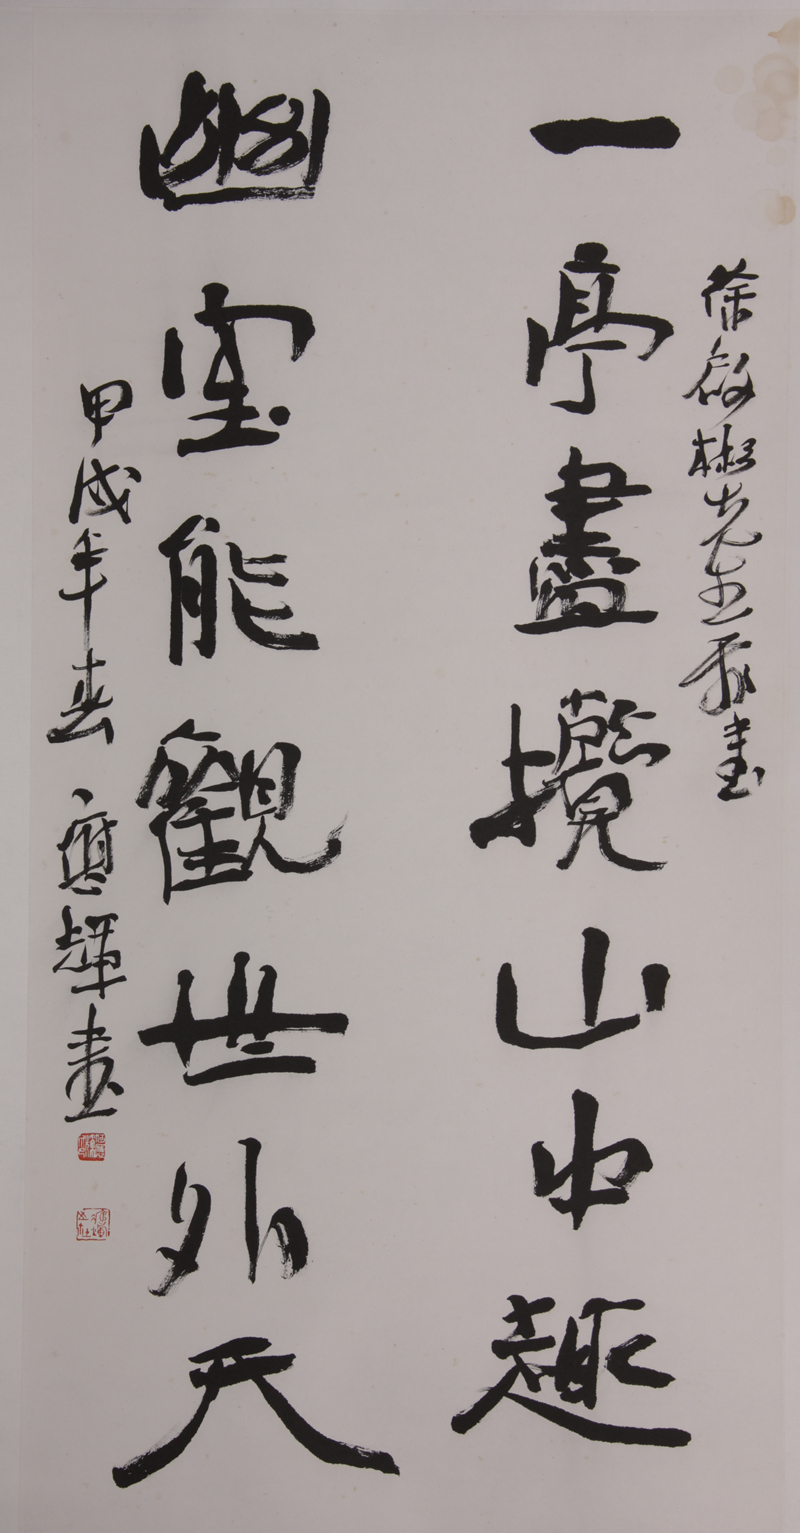 徐啟彬先生雅書
一亭盡攬山中趣
幽室能觀世外天
甲戌年春 應輝書